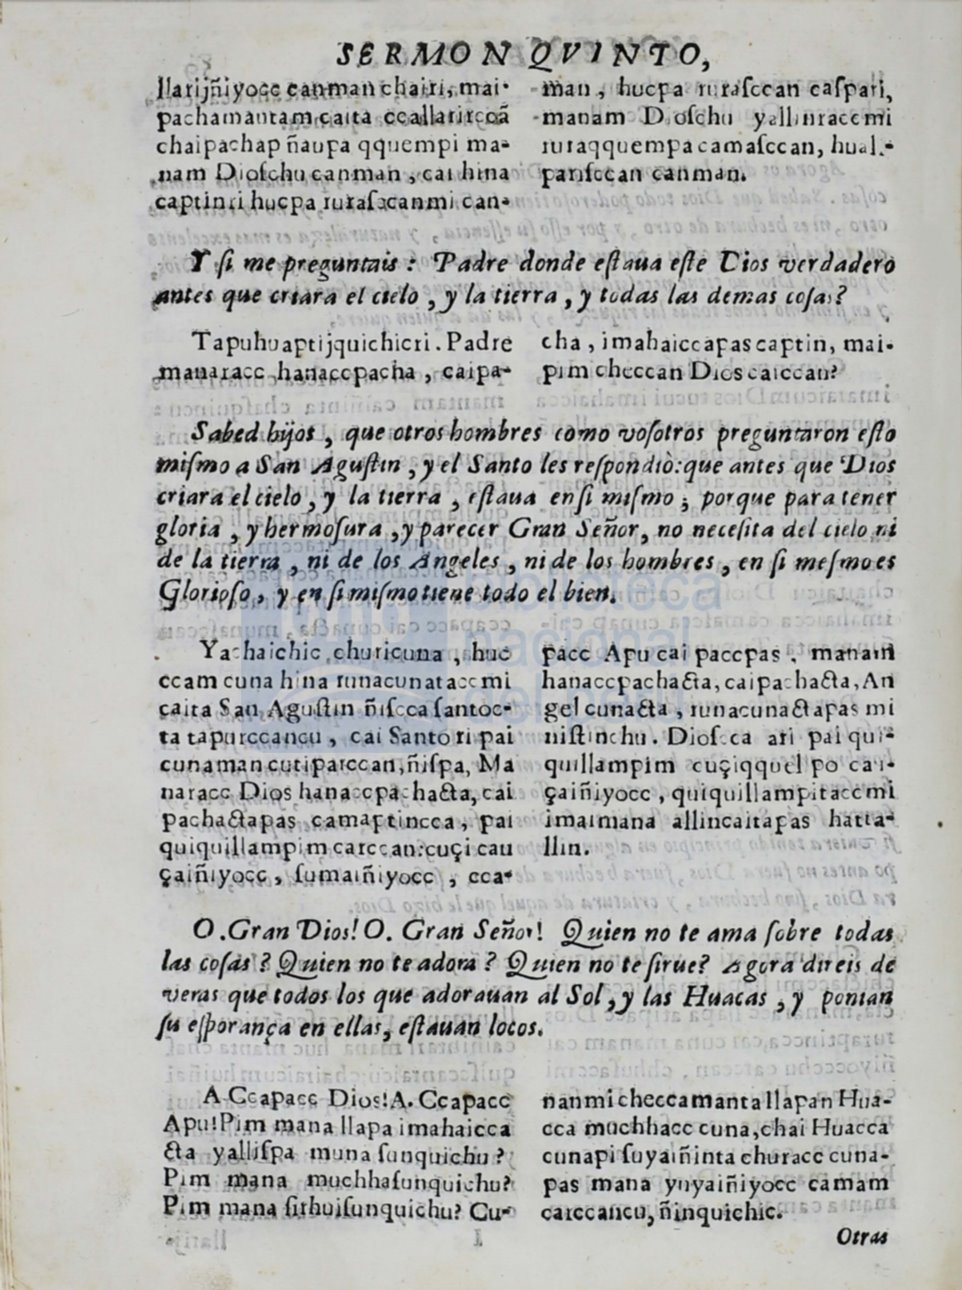 SERMON QVINTO,
llarijñiyocc canman chairi, mai-
pachamantam caita ccallarircca
chaipachap ñaupa qquempi ma-
nam Dioſchu canman, cai hina
captinri hucpa ruraſccanmi can-
man, hucpa ruraſccan caſpari,
manam Dioſchu yallinraccmi
ruraqquempa camaſccan, hual-
pariſccan canman.
Y ſi me preguntais: Padre donde eſtaua eſte Dios verdadero
antes que criara el cielo, y la tierra, y todas las demas coſas?
Tapuhuaptijquichicri. Padre
manaracc hanaccpacha, caipa-
cha, imahaiccapas captin, mai-
pim checcan Dios carccan?
Sabed hijos, que otros hombres como voſotros preguntaron eſto
miſmo a San Aguſtin, y el Santo les reſpondiò: que antes que Dios
criara el cielo, y la tierra, eſtaua en ſi miſmo; porque para tener
gloria, y hermoſura, y parecer Gran Señor, no neceſita del cielo ni
de la tierra, ni de los Angeles, ni de los hombres, en ſi meſmo es
Glorioſo, y en ſi miſmo tiene todo el bien.
Yachaichic churicuna, huc
ccam cuna hina runacunataccmi
caita San Aguſtin ñiſcca ſantoc-
ta tapurccancu, cai Santo ri pai
cunaman cutiparccan, ñiſpa, Ma
naracc Dios hanaccpachacta, cai
pachactapas camaptincca, pai
quiquillampim carccan: cuçi cau
çaiñiyocc, ſumaiñiyocc, cca-
pacc Apu cai paccpas, manam
hanaccpachacta, caipachacta, An
gel cunacta, runacunactapas mi
niſtinchu. Dioſcca ari pai qui-
quillampim cuçiqquel po cau-
çaiñiyocc, quiquillampitaccmi
imaimana allincaitapas hatta-
llin.
O. Gran Dios! O. Gran Señor! Quien no te ama ſobre todas
las coſas? Quien no te adora? Quien no te ſirue? Agora direis de
veras que todos los que adorauan al Sol, y las Huacas, y ponian
ſu eſporança en ellas, eſtauan locos.
A Ccapacc Dios! A. Ccapacc
Apu! Pim mana llapa imahaicca
cta yalliſpa muna ſunquichu?
Pim mana muchhaſunquichu?
Pim mana ſirhuiſunquichu? Cu-
nanmi checcamanta llapan Hua-
cca muchhacc cuna, chai Huacca
cunapi ſuyaiñinta churacc cuna-
pas mana yuyaiñiyocc camam
carccancu, ñinquichic.
Otras